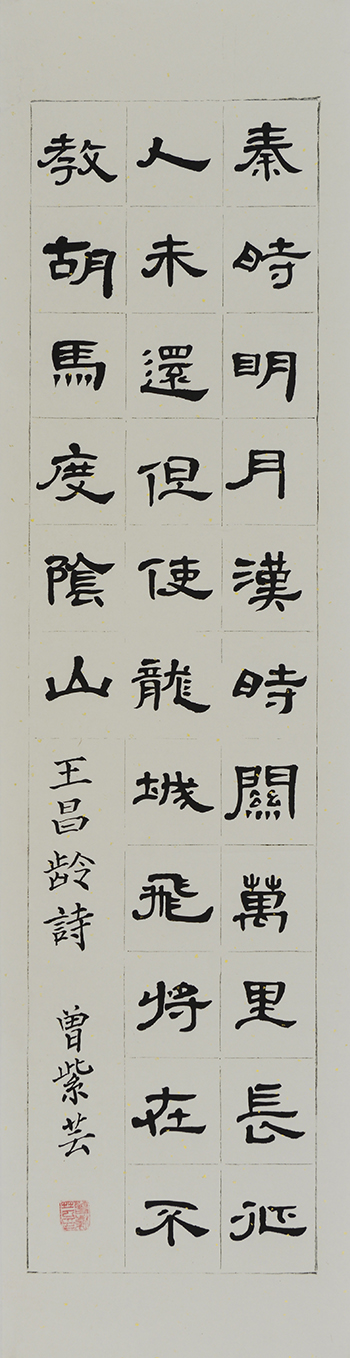 秦時明月漢時關萬里長征
人未還但使龍城飛將在不
教胡馬度陰山
王昌龄詩 曾紫芸